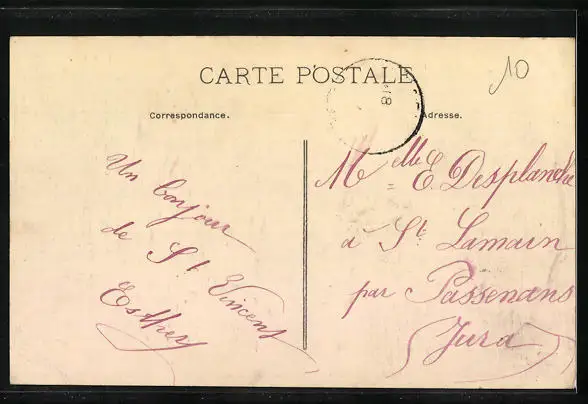 10
CARTE POSTALE
Correspondance.
Adresse.
Un bonjour
de St Vincent
Esther
Melle E. Desplanche
à St Lamain
par Passenans
(Jura)